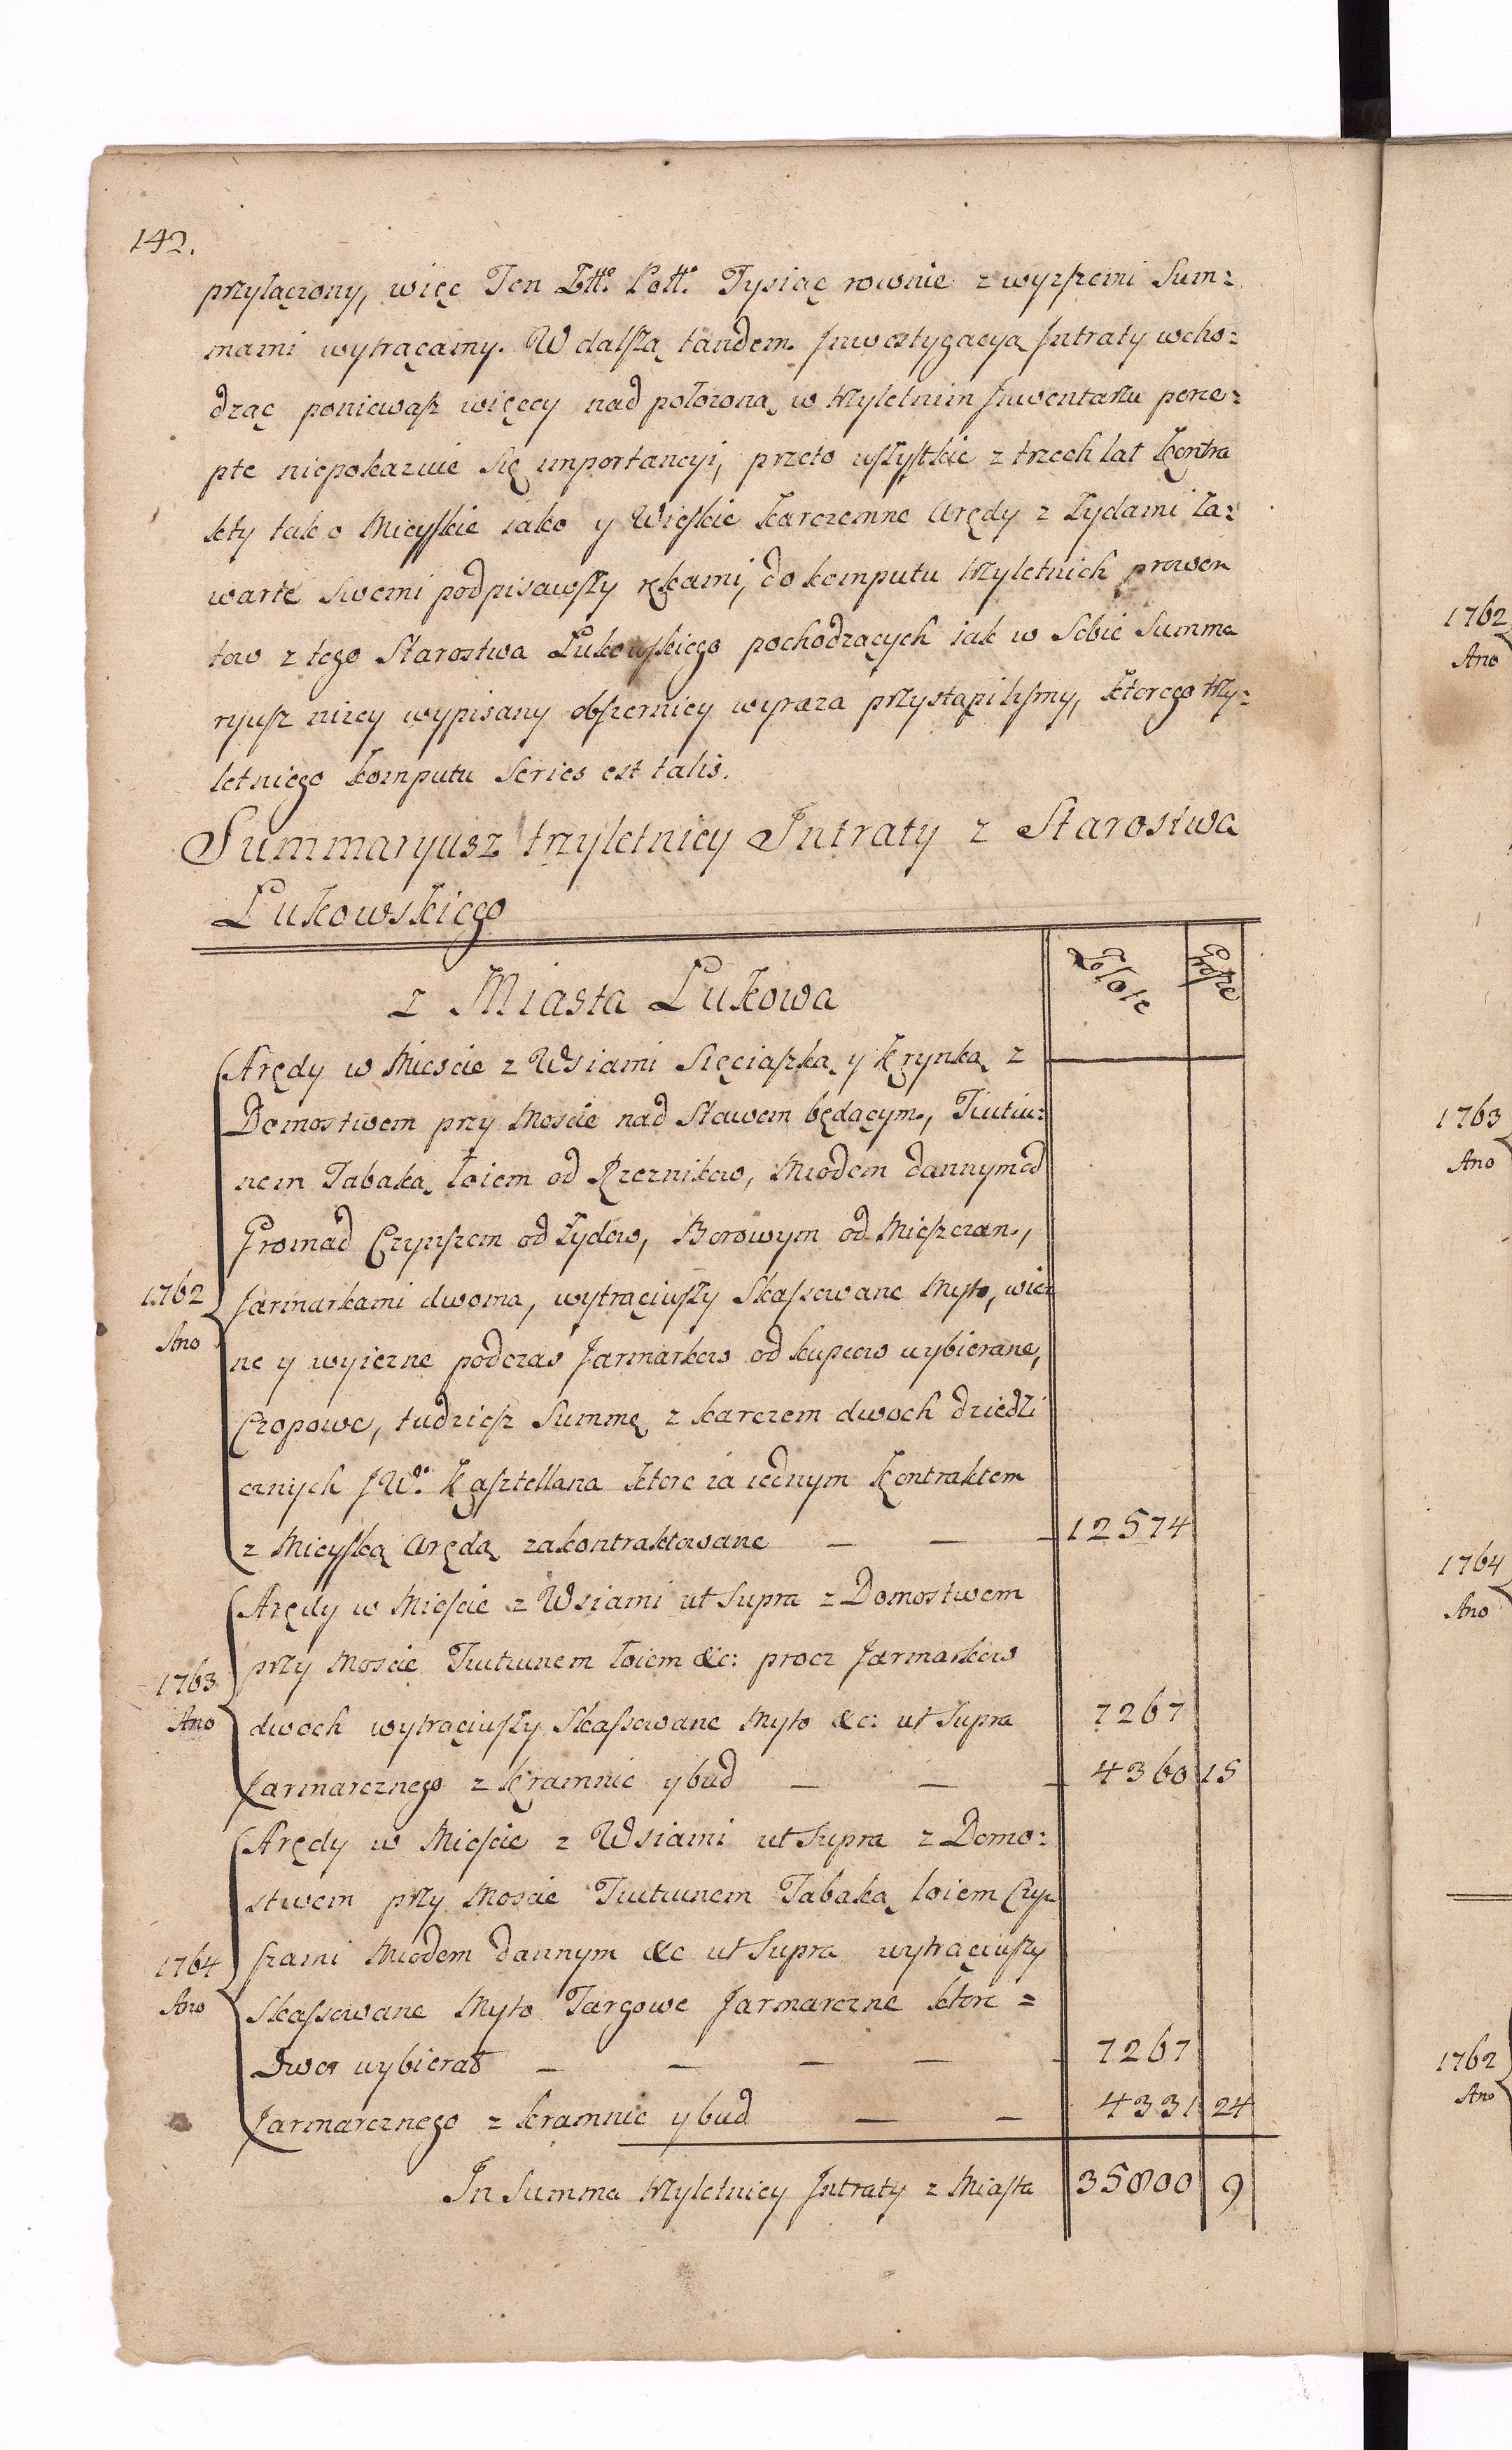 142.
przyłączony, więc Ten Ztt: Poll: Tysiąc rownie z wyzszemi Sum:
mami wytrącamy. W dalszą tandem Jnwestygacyą Jntraty wcho:
dząc poniewasz więcey nad położoną w trzyletnim Jnwentarzu perce:
pte niepokazuie się importancyi, przeto wszystkie z trzech lat Kontra
kty tak o Mieyskie iako y Wieyskie karczemne Arędy z Zydami Za:
warte swemi podpisawszy rękami, do komputu trzyletnich prowen
tow z tego Starostwa Łukowskiego pochodzących iak w Sobie Summa
ryusz niżey wypisany obszerniey wyraza przystąpilismy, ktorego trzy:
letniego komputu Series est talis.
Summaryusz trzyletniey Jntraty z Starostwa
Łukowskiego
Złote
Grosze
z Miasta Łukowa
Arędy w Miescie z Wsiami Sięciaszką y Krynką z
Domostwem przy Moscie nad Stawem będącym, Tiutiu:
nem Tabaką Łoiem od Rzeznikow, Miodem dannym od
Gromad Czynszem od Zydow, Borowym od Mieszczan,
1762
Jarmarkami dwoma, wytrąciwszy Skassowane Myto, wiez
Ano
ne y wyiezne podczas Jarmarkow od kupcow wybierane,
Czopowe, tudziesz Summę z karczem dwoch dziedzi
cznych JWo. Kasztellana ktore za iednym Kontraktem
z Mieyską Arędą zakontraktowane — — — 12574
Arędy w Miescie z Wsiami ut Supra z Domostwem
1763
przy Moscie Tiutiunem Łoiem &c: procz Jarmarkow
Ano
dwoch wytrąciwszy Skassowane Myto &c: ut Supra 7267
Jarmarcznego z kramnic y bud — — — 4360 15
Arędy w Miescie z Wsiami ut Supra z Domo:
stwem przy Moscie Tiutiunem Tabaką Łoiem Czyn
1764
szami Miodem dannym &c ut Supra wytrąciwszy
Ano
Skassowane Myto Targowe Jarmarczne ktore =
Dwor wybierał — — — — — 7267
Jarmarcznego z kramnic y bud — — 4331 24
Jn Summa trzyletniey Jntraty z Miasta 35800 9
1762
Ano
1763
Ano
1764
Ano
1762
Ano